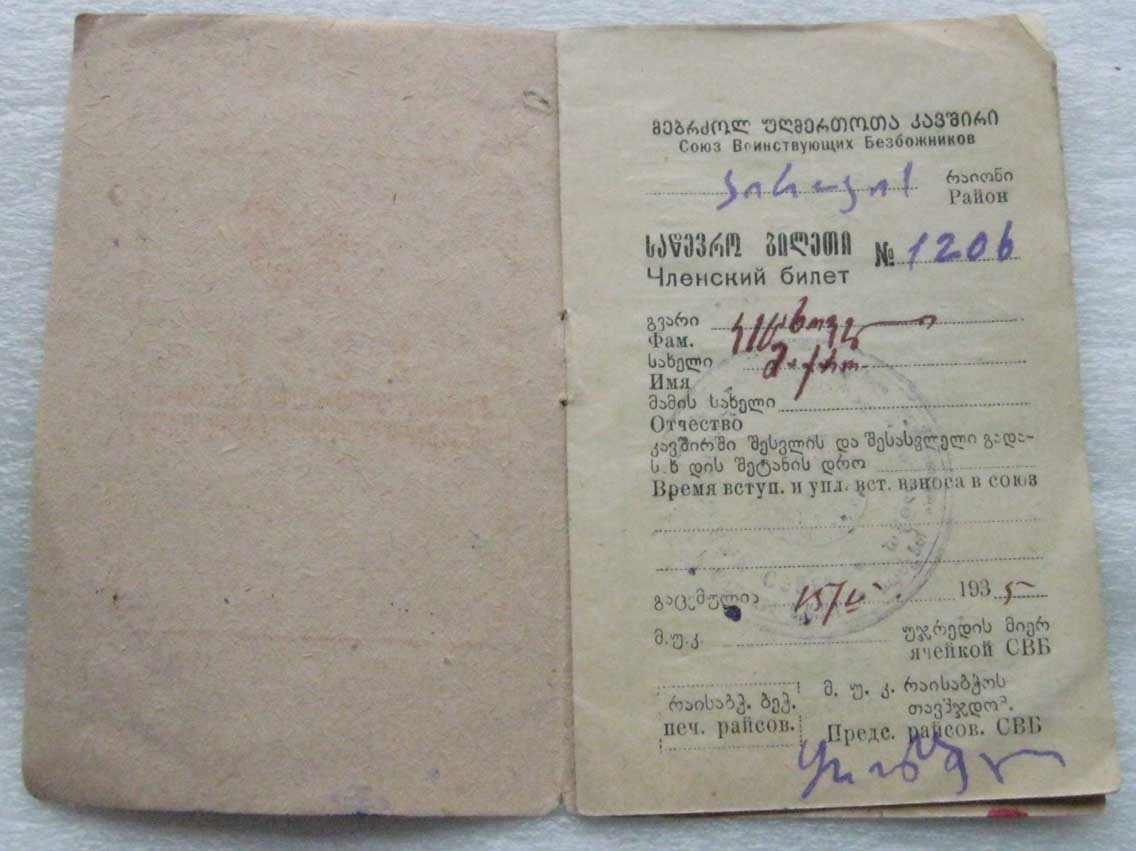 ᲛᲔᲑᲠᲫᲝᲚ ᲣᲦᲛᲔᲠᲗᲝᲗᲐ ᲙᲐᲕᲨᲘᲠᲘ
Союз Воинствующих Безбожников
რაიონი
Район
ᲡᲐᲬᲔᲕᲠᲝ ᲑᲘᲚᲔᲗᲘ № 1206
Членский билет
გვარი
Фам.
სახელი
Имя
მამის სახელი
Отчество
კავშირში შესვლის და შესასვლელი გადა-
ს.ხ დის შეტანის დრო
Время вступ. и упл. вст. взноса в союз
გაცემულია 1935
მ.უ.კ. უჯრედის მიერ
ячейкой СВБ
რაისაბჭ. ბეჭ. მ. უ. კ. რაისაბჭოს
თავმჯდომ.
печ. райсов. Предс. райсов. СВБ